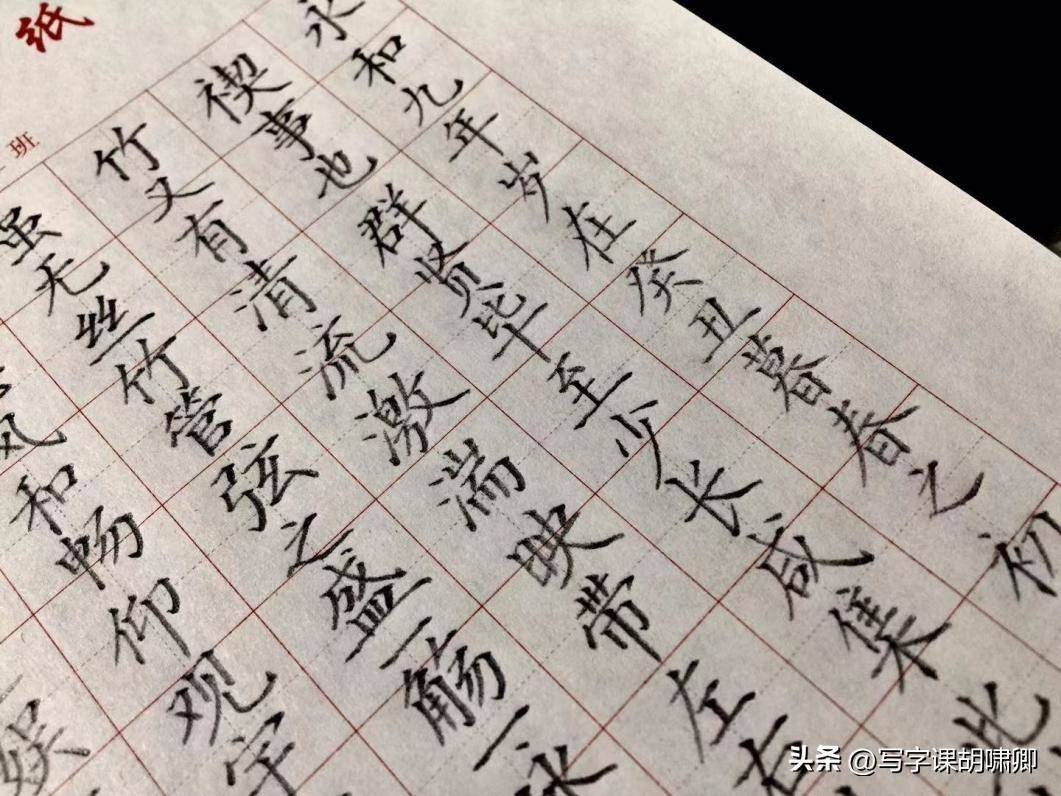 纸
班
永和九年岁在癸丑暮春之初
禊事也群贤毕至少长咸集此
竹又有清流激湍映带左右
虽无丝竹管弦之盛一觞一咏
风和畅仰观宇
娱
头条 @写字课胡啸卿